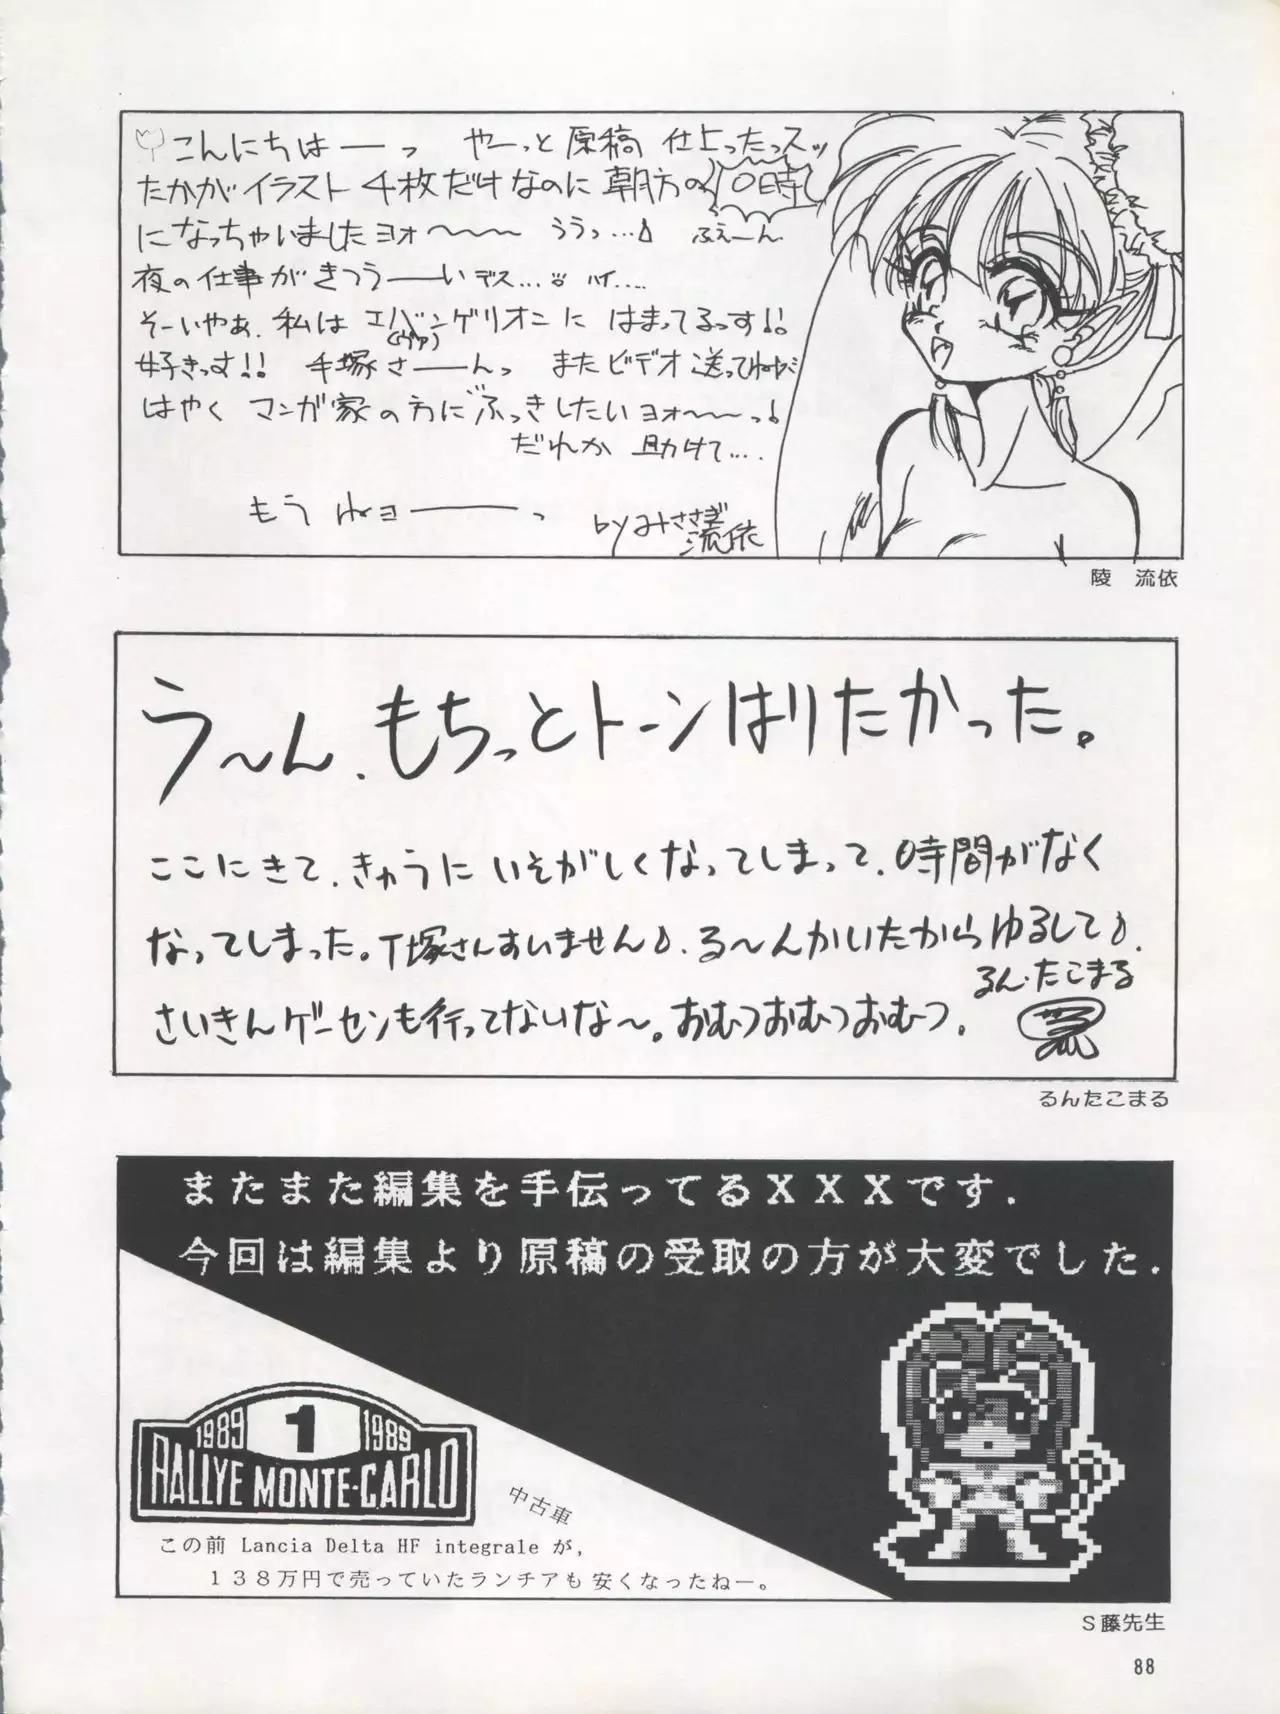 こんにちはーっ やーっと原稿仕上ったっスッ
たかがイラスト4枚だけなのに朝方の10時
になっちゃいましたヨォ〜〜〜 ううっ…♪ ふぇーん
夜の仕事がきつうーいデス… ハイ….
そーいやぁ、私はエバンゲリオンに はまってるっす!!
(ヴァ)
好きっす!! 手塚さーんっ またビデオ送ってねっ
はやく マンガ家の方に ふっきしたいヨォ〜〜っ!
だれか 助けて….
もう ねョーーっ
by みささぎ
流依
陵 流依
う〜ん、もちっとトーンはりたかった。
ここにきて、きゅうに いそがしくなってしまって、時間がなく
なってしまった。T塚さんすいません♪、る〜んかいたからゆるして♪.
るん・たこまる
さいきんゲーセンも行ってないな〜。おむつおむつおむつ.
るんたこまる
またまた編集を手伝ってるXXXです.
今回は編集より原稿の受取の方が大変でした.
1989 1 1989
RALLYE MONTE-CARLO
中古車
この前 Lancia Delta HF integrale が,
138万円で売っていたランチアも安くなったねー。
S藤先生
88